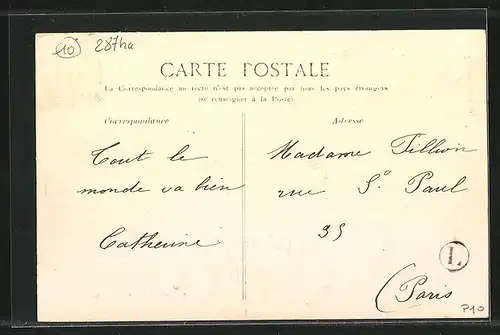 10 287ha
CARTE POSTALE
La Correspondance au recto n'est pas acceptée par tous les pays étrangers
(se renseigner à la Poste)
Correspondance
Adresse
Tout le
monde va bien
Catherine
Madame Tillion
rue St Paul
35
L
(Paris
P10